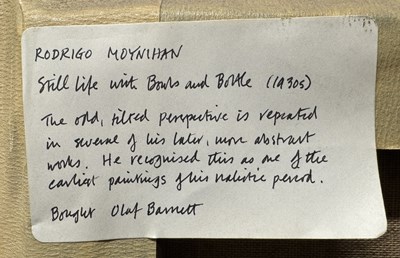 RODRIGO MOYNIHAN
Still life with Bowls and Bottle (1930s)
The odd, tilted perspective is repeated
in several of his later, more abstract
works. He recognised this as one of the
earliest paintings of his realistic period.
Bought Olaf Barnett